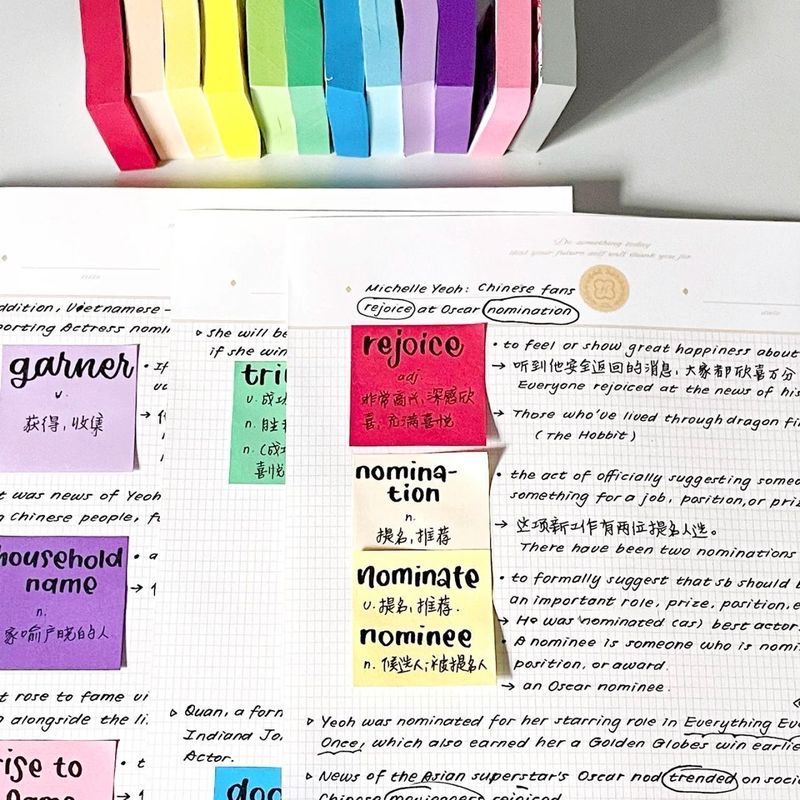 Do something today
that your future self will thank you for
date
Michelle Yeoh: Chinese fans
rejoice at Oscar nomination
rejoice
adj.
非常高兴,深感欣
喜,充满喜悦
• to feel or show great happiness about
→ 听到他安全返回的消息,大家都欣喜万分
Everyone rejoiced at the news of his
→ Those who've lived through dragon fi
(The Hobbit)
nomina-
tion
n.
提名,推荐
• the act of officially suggesting someo
something for a job, position, or priz
→ 这项新工作有两位提名人选。
There have been two nominations
nominate
v. 提名,推荐.
nominee
n. 候选人;被提名人
• to formally suggest that sb should b
an important role, prize, position, e
→ He was nominated (as) best actor
• A nominee is someone who is nomi
position, or award.
→ an Oscar nominee.
▹ Yeoh was nominated for her starring role in Everything Eve
Once, which also earned her a Golden Globes win earlie
▹ News of the Asian superstar's Oscar nod trended on soci
Chinese moviegoers rejoiced
▹ She will be
if she win
tri
v. 成功
n. 胜利
n. (成功
喜悦
▹ Quan, a form
Indiana Jo
Actor.
doc
ddition, Vietnamese-
porting Actress nomi
garner
v.
获得,收集
• If
t was news of Yeoh
n Chinese people, f
household
name
n.
家喻户晓的人
• a
t rose to fame vi
n alongside the li
rise to
fame
• t